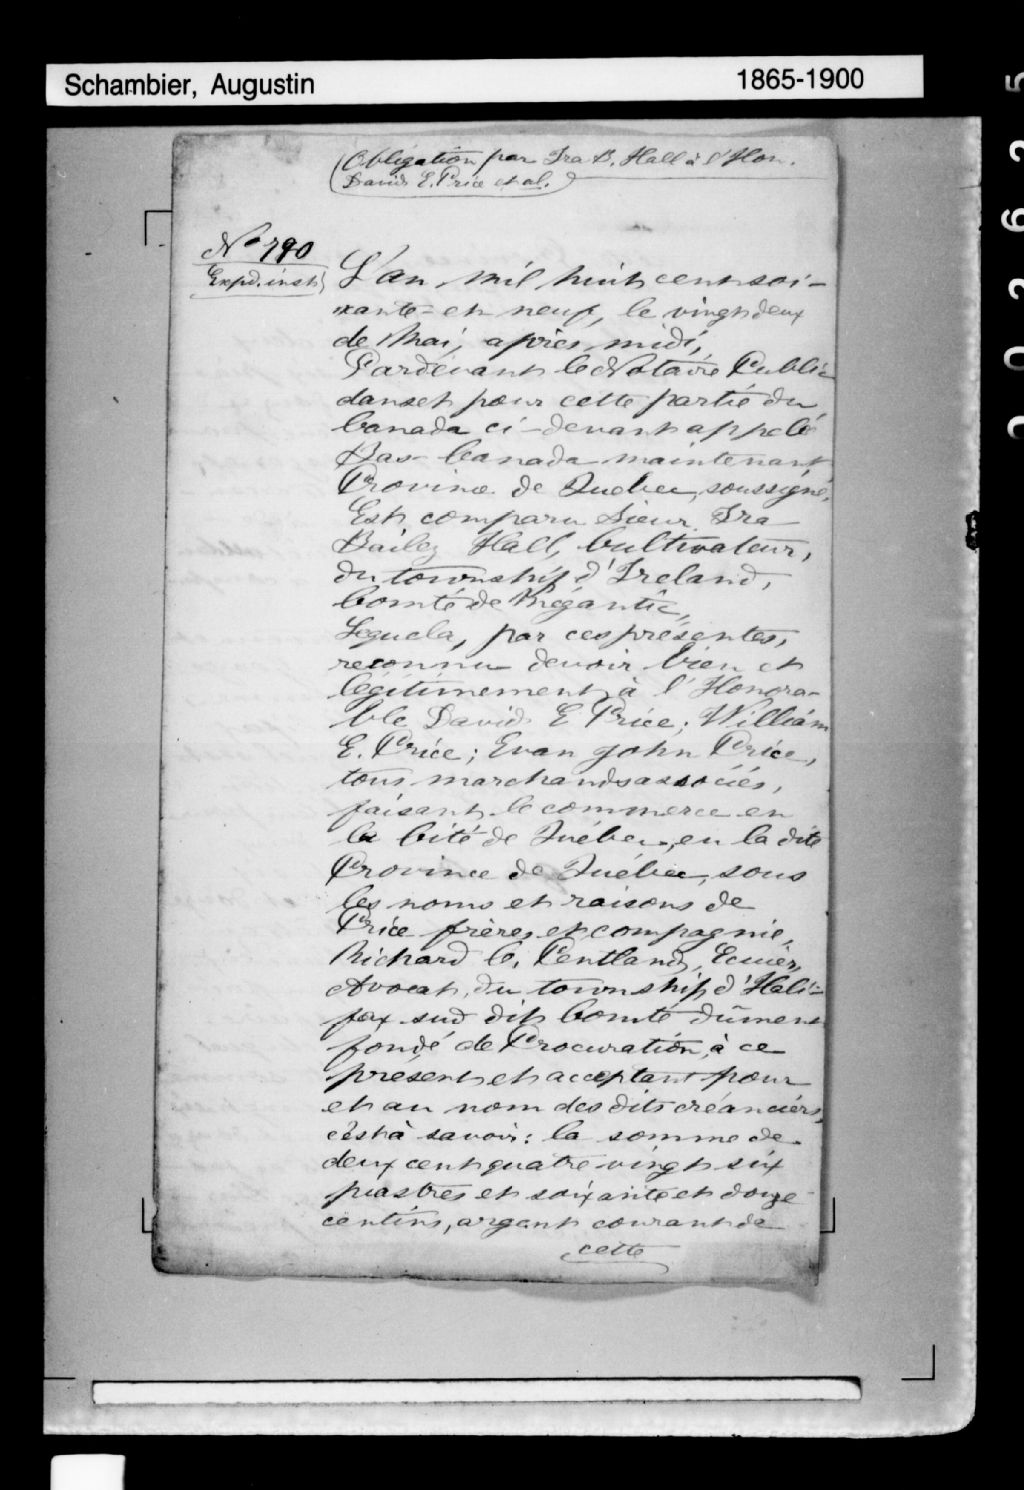 Schambier, Augustin
1865-1900
Obligation par Ira B. Hall à l'Hon.
David E. Price et al.
No 790
Expd. inst.
L'an mil huit cent soi-
xante-et neuf, le vingt deux
de Mai, après midi,
Pardevant le Notaire Public
dans et pour cette partie du
Canada ci-devant appelé
Bas-Canada maintenant
Province de Quebec, soussigné,
Est comparu Sieur Ira
Bailey Hall, Cultivateur,
du township d'Ireland,
Comté de Mégantic,
Lequela, par ces présentes,
reconnu devoir bien et
légitimement à l'Honora-
ble David E Price; William
E. Price; Evan John Price,
tous marchands associés,
faisant le commerce en
la Cité de Québec, en la dite
Province de Québec, sous
les noms et raisons de
Price frères et compagnie,
Richard C. Pentland, Ecuier,
Avocat, du township d'Hali-
fax sud dit Comté dûment
fondé de Procuration, à ce
présent et acceptant pour
et au nom des dits créanciers,
c'est à savoir: la somme de
deux cent quatre vingt six
piastres et soixante et douze
centins, argent courant de
cette
202625